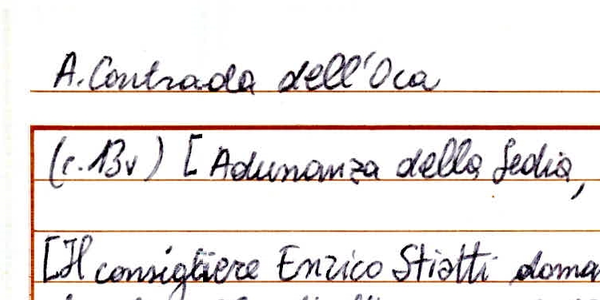 A. Contrada dell'Oca
(c. 13v) [Adunanza della Sedia,
[Il consigliere Enrico Stiatti doma